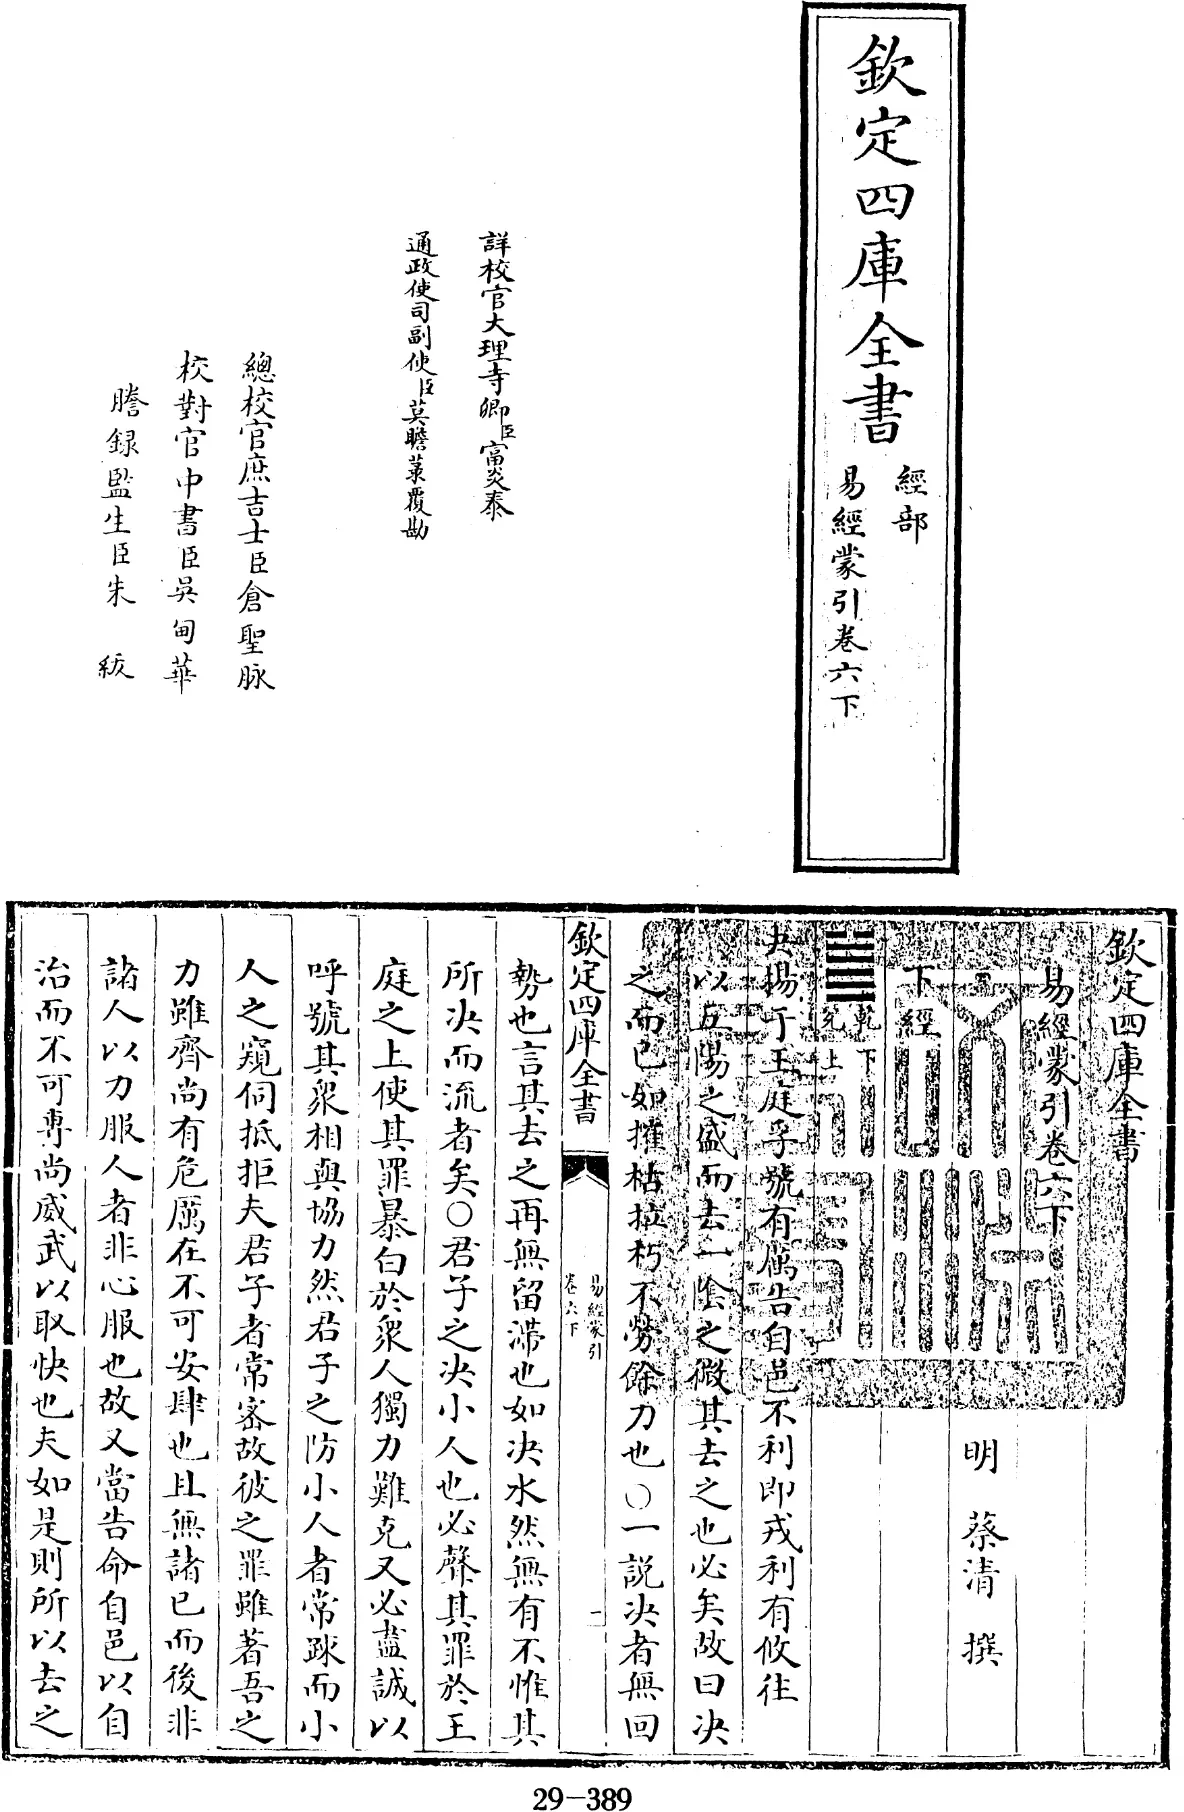 欽定四庫全書
經部
易經蒙引卷六下
詳校官大理寺卿臣富炎泰
通政使司副使臣莫瞻菉覆勘
總校官庶吉士臣倉聖脉
校對官中書臣吳甸華
謄錄監生臣朱紱
欽定四庫全書
易經蒙引卷六下
明 蔡清 撰
下經
乾下
兌上
夬揚于王庭孚號有厲告自邑不利即戎利有攸往
以五陽之盛而去一陰之微其去之也必矣故曰决
之而已如摧枯拉朽不勞餘力也○一說决者無回
欽定四庫全書
易經蒙引
卷六下
勢也言其去之再無留滯也如决水然無有不惟其
所决而流者矣○君子之决小人也必聲其罪於王
庭之上使其罪暴白於衆人獨力難克又必盡誠以
呼號其衆相與協力然君子之防小人者常踈而小
人之窺伺抵拒夫君子者常密故彼之罪雖著吾之
力雖齊尚有危厲在不可安肆也且無諸已而後非
諸人以力服人者非心服也故又當告命自邑以自
治而不可專尚威武以取快也夫如是則所以去之
29-389